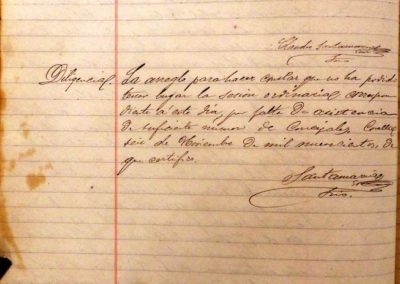 Claudio Santamaría
Srio.
Diligencia La arreglo para hacer constar que no ha podido
tener lugar la sesión ordinaria correspon
diente á este día, por falta de asistencia
de suficiente número de Concejales.
seis de Noviembre de mil novecientos, de
que certifico.
Santamaría
Srio.